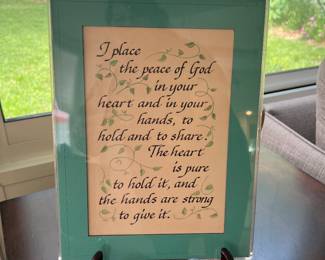 I place
the peace of God
in your
heart and in your
hands, to
hold and to share.
The heart
is pure
to hold it, and
the hands are strong
to give it.